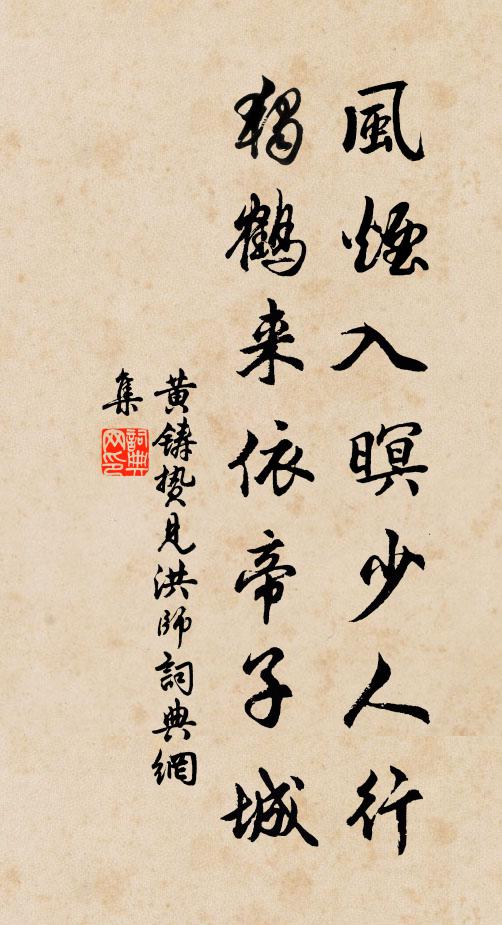 風煙入暝少人行
獨鶴来依帝子城
黄鑄贄見洪師詞典網
集
詞典
网印